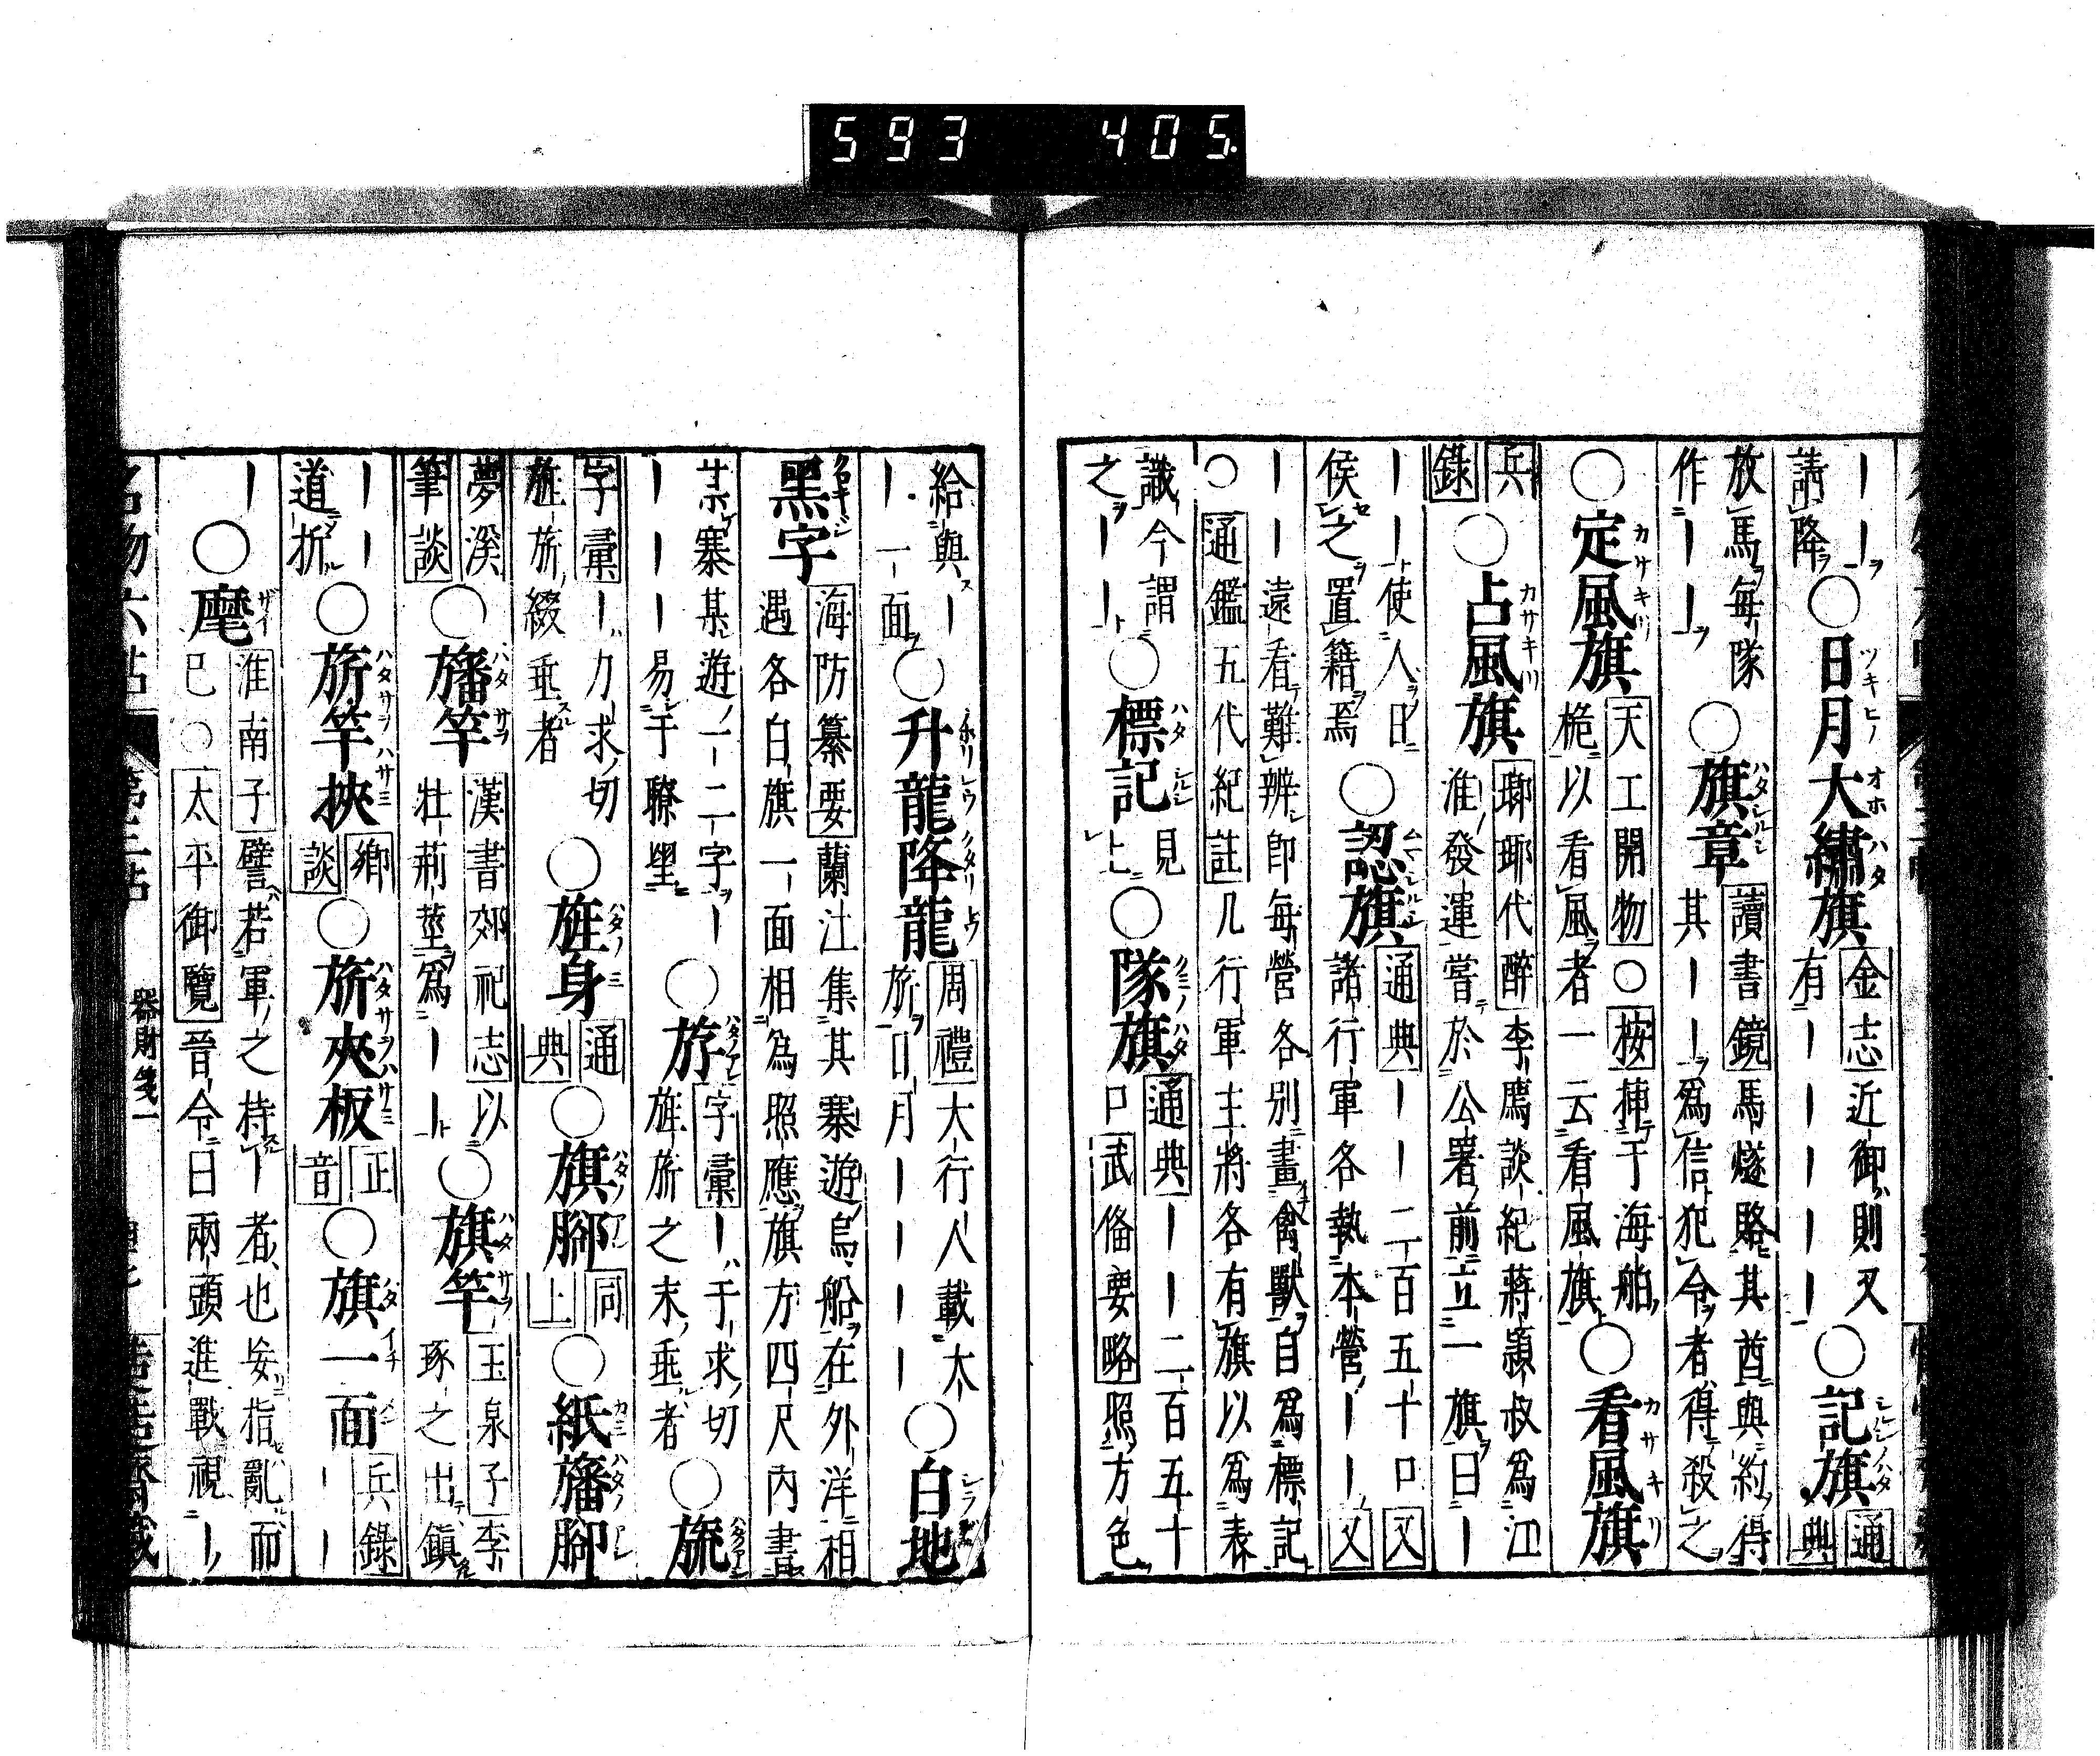 593 405.
｜｜○日月大繡旗 金志近御則又
請降 有｜｜｜｜○記旗 通典
放馬每隊 ○旗章 讀書鏡馬燧賂其酋與約得
作｜｜ 其｜｜爲信犯令者得殺之
○定風旗 天工開物○按揷于海舶
桅以看風者一云看風旗○看風旗
兵錄○占風旗 瑯琊代醉李鷹談紀蔣潁叔爲江
淮發運嘗於公署前立一旗曰｜
｜｜使人日
侯之置籍焉○認旗 通典｜｜二百五十口又
諸行軍各執本營｜｜又
｜｜遠看難辨卽每營各別畫禽獸自爲標記
○通鑑五代紀註凡行軍主將各有旗以爲表
識今謂
之｜｜○標記 見上○隊旗 通典｜｜二百五十
口武俻要略照方色
給與｜
｜一面○升龍降龍 周禮大行人載太
旂日月｜｜｜｜○白地
黑字 海防纂要蘭江集其寨遊烏船在外洋相
遇各白旗一面相爲照應旗方四尺內書
某寨某遊一二字｜
｜｜｜易于瞭望○斿 字彙｜于求切
旌旂之末垂者○旒
字彙｜力求切
旌旂綴垂者○旌身 通典○旗腳 同上○紙旛腳
夢溪筆談○旛竿 漢書郊祀志以
牡荊莖爲｜｜○旗竿 玉泉子李
琢之出鎮
｜｜
道折○旂竿挾 鄉談○旂夾板 正音○旗一面 兵錄
｜｜
｜○麾 淮南子譬若軍之持｜者也妄指亂而
已○太平御覽晉令曰兩頭進戰視｜
器財箋一